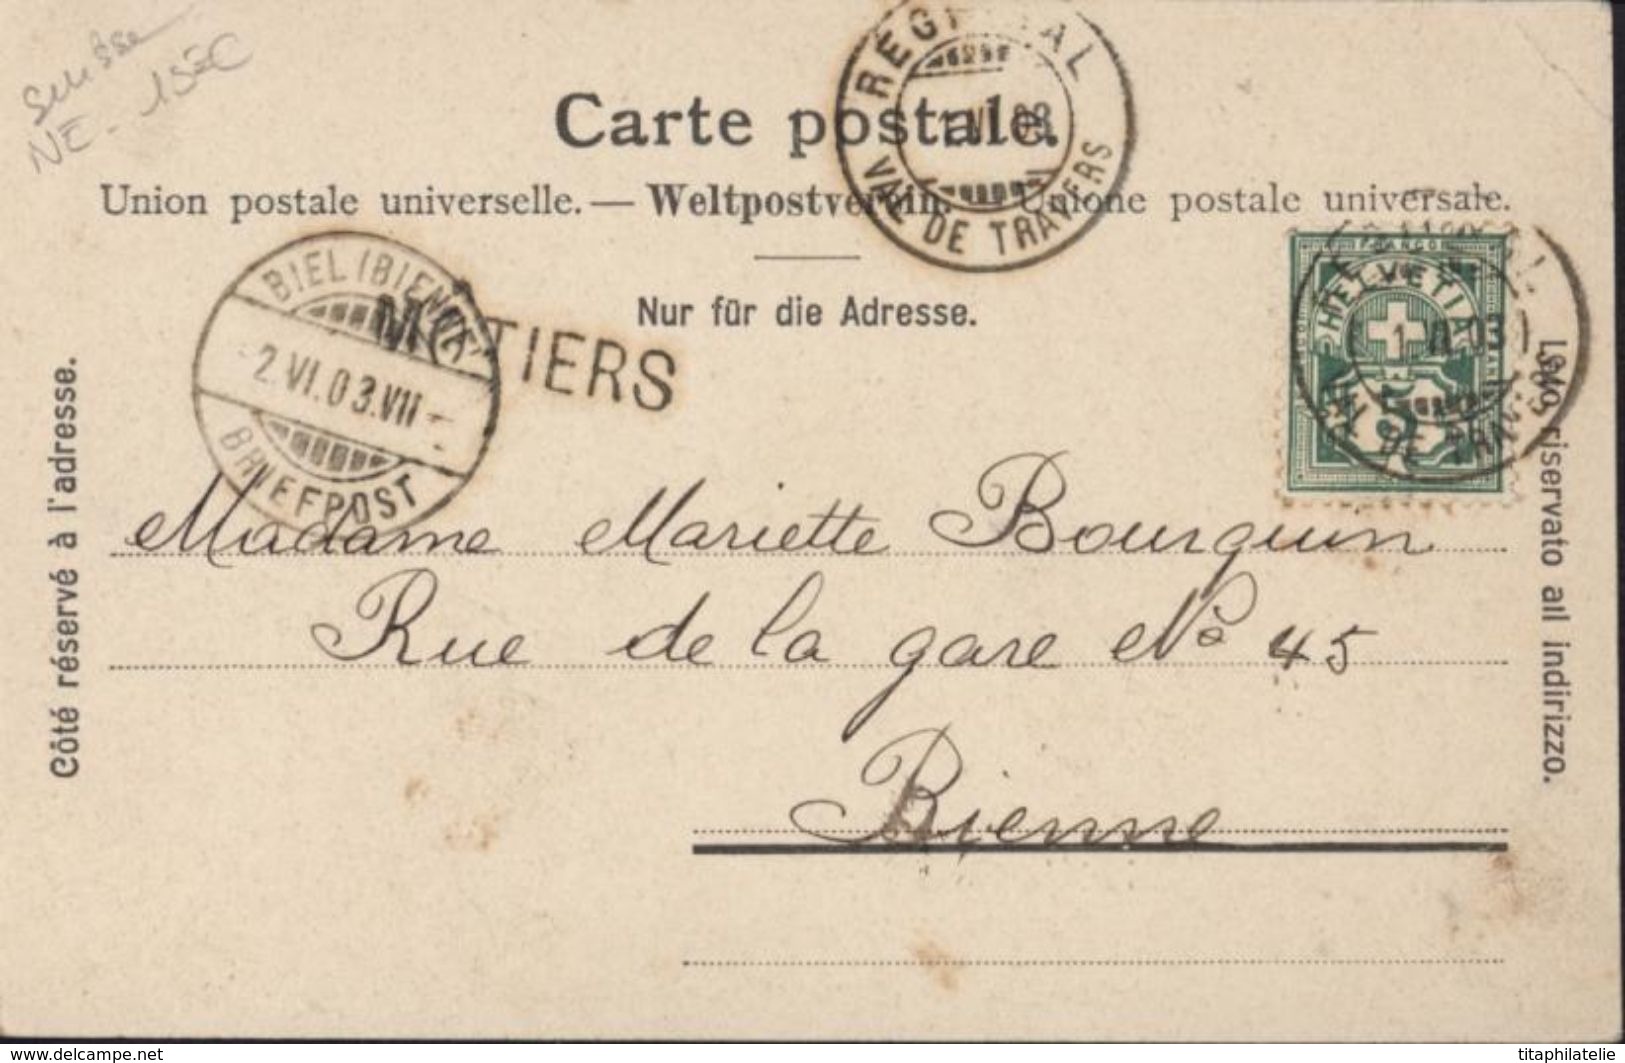 Suisse
NE - 15EC
RÉGIONAL
1 VI 03
VAL DE TRAVERS
Carte postale.
Union postale universelle. — Weltpostverein. — Unione postale universale.
Nur für die Adresse.
BIEL (BIENNE)
2.VI.03.VII
BRIEFPOST
MOTIERS
FRANCO
HELVETIA
1 VI 03
5
DE TRAV
Côté réservé à l'adresse.
Lato riservato all indirizzo.
Madame Mariette Bourquin
Rue de la gare No 45
Bienne
www.delcampe.net
titaphilatelie